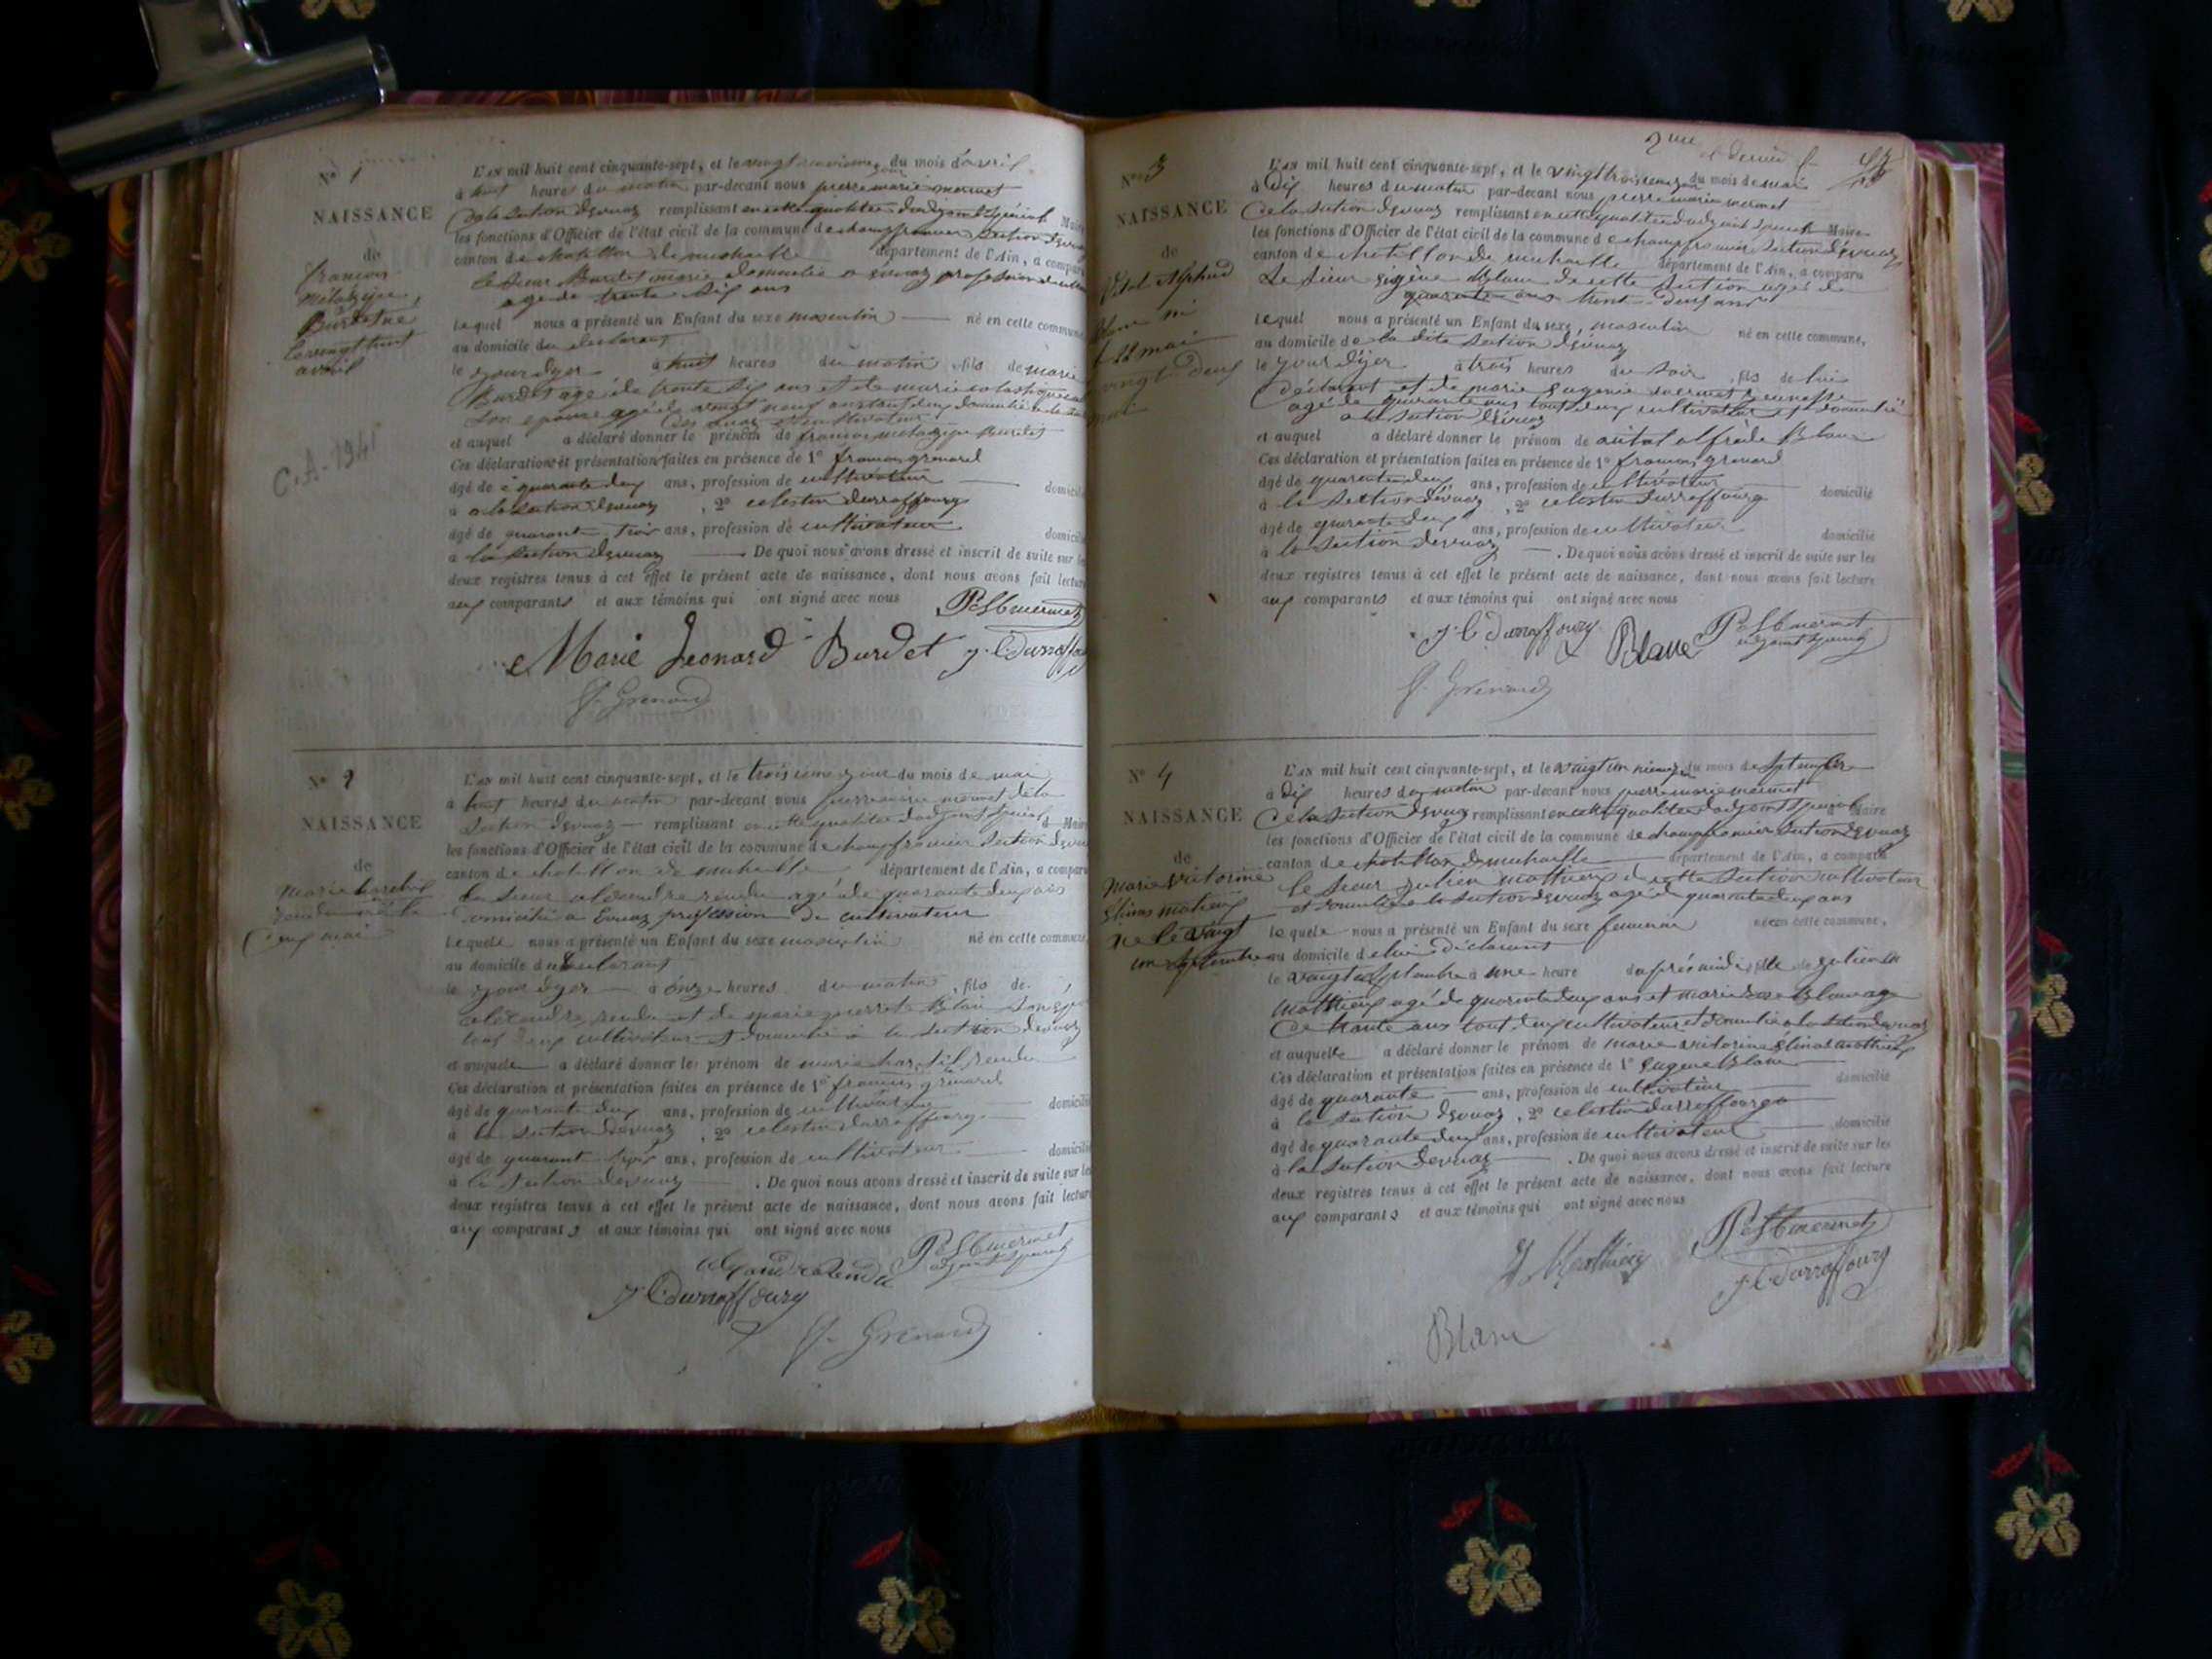 N° 1
NAISSANCE
de
francois
Burdet né
avril
C.A. 1941
L'AN mil huit cent cinquante-sept, et le vingt neuvieme jour du mois d'avril
à huit heures du matin par-devant nous pierre marie mermet
de la section d'evuaz remplissant en cette qualité d'adjoint spécial Maire
les fonctions d'Officier de l'état civil de la commune de champfromier section d'evuaz
canton de chatillon de michaille département de l'Ain, a comparu
le sieur Burdet marie domicilié a evuaz profession de
agé de trente six ans
lequel nous a présenté un Enfant du sexe masculin né en cette commune
au domicile du declarant
le jour d'yer à huit heures du matin, fils de marie
Burdet agé de trente six ans et de marie
son epouse agé de vingt neuf ans tout deux domicilié
et auquel a déclaré donner le prénom de francois Burdet
Ces déclaration et présentation faites en présence de 1° francois grenard
âgé de quarante deux ans, profession de cultivateur domicilié
à a la section d'evuaz, 2° celestin durraffourg
âgé de quarante trois ans, profession de cultivateur domicilié
à la section d'evuaz. De quoi nous avons dressé et inscrit de suite sur les
deux registres tenus à cet effet le présent acte de naissance, dont nous avons fait lecture
aux comparants et aux témoins qui ont signé avec nous
Marie Leonard Burdet
F. Grenard
N° 2
NAISSANCE
de
deux mai
L'AN mil huit cent cinquante-sept, et le troisieme jour du mois de mai
à huit heures du matin par-devant nous pierre marie mermet de la
section d'evuaz remplissant en cette qualité d'adjoint spécial Maire
les fonctions d'Officier de l'état civil de la commune de champfromier section d'evuaz
canton de chatillon de michaille département de l'Ain, a comparu
le sieur alexandre rendu agé de quarante deux ans
domicilié a Evuaz profession de cultivateur
lequel nous a présenté un Enfant du sexe masculin né en cette commune,
au domicile du declarant
le jour d'yer à onze heures du matin, fils de
alexandre rendu et de marie Blanc son
tous deux cultivateur et domicilié à la section d'evuaz
et auquel a déclaré donner le prénom de marie rendu
Ces déclaration et présentation faites en présence de 1° francois grenard
âgé de quarante deux ans, profession de cultivateur domicilié
à la section d'evuaz, 2° celestin durraffourg
âgé de quarante trois ans, profession de cultivateur domicilié
à la section d'evuaz. De quoi nous avons dressé et inscrit de suite sur les
deux registres tenus à cet effet le présent acte de naissance, dont nous avons fait lecture
aux comparants et aux témoins qui ont signé avec nous
J. C. Durraffourg
F. Grenard
2me et dernier f
N° 3
NAISSANCE
de
Blanc né
le 22 mai
vingt deux
mai
L'AN mil huit cent cinquante-sept, et le vingt troisieme jour du mois de mai
à dix heures du matin par-devant nous pierre marie mermet
de la section d'evuaz remplissant en cette qualité d'adjoint spécial Maire
les fonctions d'Officier de l'état civil de la commune de champfromier section d'evuaz
canton de chatillon de michaille département de l'Ain, a comparu
Le sieur eugène Blanc de cette section agé de
quarante ans
lequel nous a présenté un Enfant du sexe, masculin né en cette commune,
au domicile de la dite section d'evuaz
le jour d'yer à trois heures du soir, fils de lui
déclarant et de marie eugenie mermet
agé de quarante ans tout deux cultivateur et domicilié
a la section d'evuaz
et auquel a déclaré donner le prénom de vital alfrède Blanc
Ces déclaration et présentation faites en présence de 1° francois grenard
âgé de quarante deux ans, profession de cultivateur domicilié
à la section d'evuaz, 2° celestin durraffourg
âgé de quarante deux ans, profession de cultivateur domicilié
à la section d'evuaz. De quoi nous avons dressé et inscrit de suite sur les
deux registres tenus à cet effet le présent acte de naissance, dont nous avons fait lecture
aux comparants et aux témoins qui ont signé avec nous
J. C. Durraffourg Blanc
F. Grenard
N° 4
NAISSANCE
de
marie victorine
né le vingt
un septembre
L'AN mil huit cent cinquante-sept, et le vingt un nieme jour du mois de septembre
à dix heures du matin par-devant nous pierre marie mermet
de la section d'evuaz remplissant en cette qualité d'adjoint spécial Maire
les fonctions d'Officier de l'état civil de la commune de champfromier section d'evuaz
canton de chatillon de michaille département de l'Ain, a comparu
le sieur julien mathieu de cette section cultivateur
et domicilié a la section d'evuaz agé de quarante deux ans
lequel nous a présenté un Enfant du sexe feminin né en cette commune,
au domicile de lui déclarant
le vingt septembre à une heure d'après midi, fille de julien
mathieu agé de quarante deux ans et marie rose Blanc agé
de trente ans tout deux cultivateur et domicilié a la section d'evuaz
et auquelle a déclaré donner le prénom de marie victorine mathieu
Ces déclaration et présentation faites en présence de 1° Eugene Blanc
âgé de quarante ans, profession de cultivateur domicilié
à la section d'evuaz, 2° celestin durraffourg
âgé de quarante deux ans, profession de cultivateur domicilié
à la section d'evuaz. De quoi nous avons dressé et inscrit de suite sur les
deux registres tenus à cet effet le présent acte de naissance, dont nous avons fait lecture
aux comparants et aux témoins qui ont signé avec nous
J. C. Durraffourg
Blanc